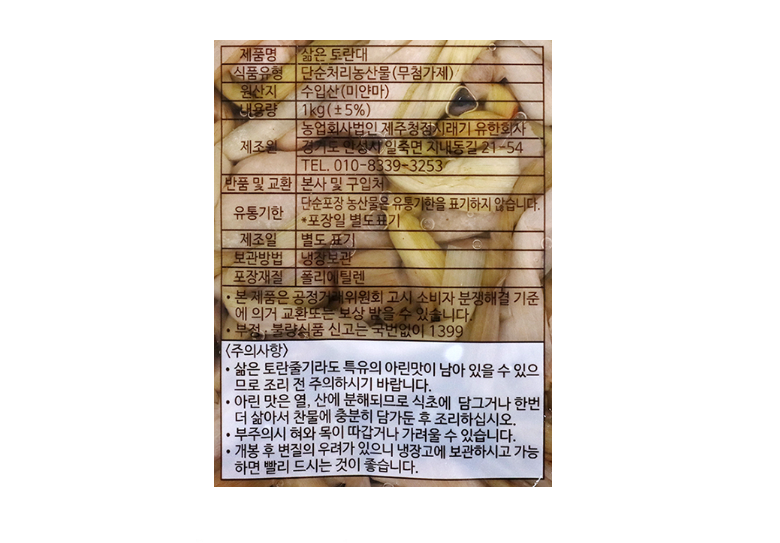 제품명 삶은 토란대
식품유형 단순처리농산물(무첨가제)
원산지 수입산(미얀마)
내용량 1kg(±5%)
제조원 농업회사법인 제주청정지래기 유한회사
경기도 안성시 일죽면 지내동길 21-54
TEL. 010-8339-3253
반품 및 교환 본사 및 구입처
유통기한 단순포장 농산물은 유통기한을 표기하지 않습니다.
*포장일 별도표기
제조일 별도 표기
보관방법 냉장보관
포장재질 폴리에틸렌
• 본 제품은 공정거래위원회 고시 소비자 분쟁해결 기준
에 의거 교환또는 보상 받을 수 있습니다.
• 부정·불량식품 신고는 국번없이 1399
〈주의사항〉
• 삶은 토란줄기라도 특유의 아린맛이 남아 있을 수 있으
므로 조리 전 주의하시기 바랍니다.
• 아린 맛은 열, 산에 분해되므로 식초에 담그거나 한번
더 삶아서 찬물에 충분히 담가둔 후 조리하십시오.
• 부주의시 혀와 목이 따갑거나 가려울 수 있습니다.
• 개봉 후 변질의 우려가 있으니 냉장고에 보관하시고 가능
하면 빨리 드시는 것이 좋습니다.